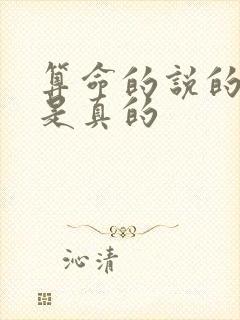 算命的說的
是真的
沁清